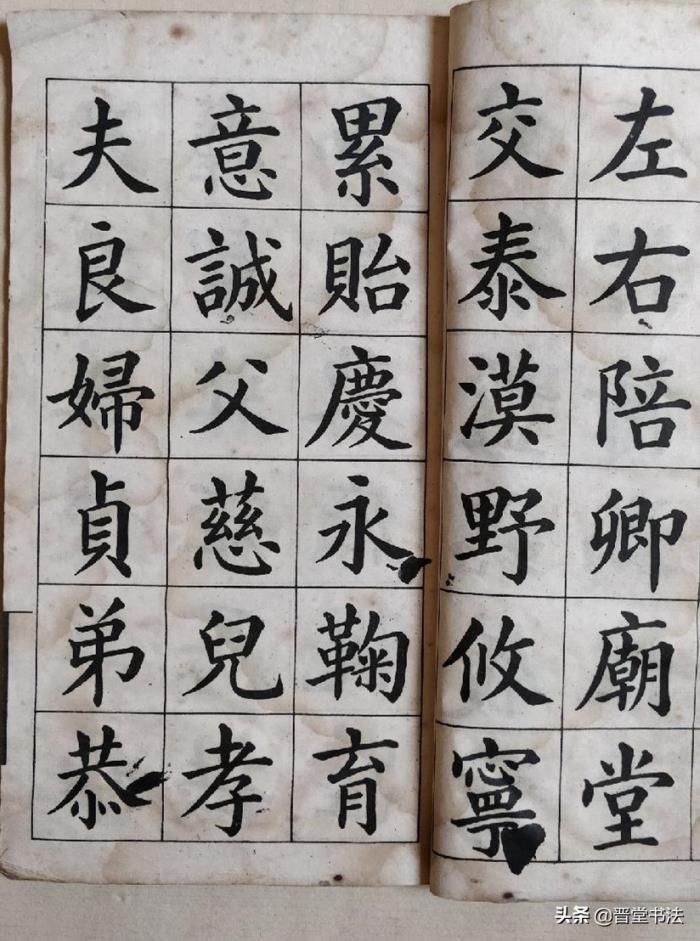 左右陪卿廟堂
交泰漠野攸寧
累貽慶永鞠育
意誠父慈兒孝
夫良婦貞弟恭
头条@晋堂书法